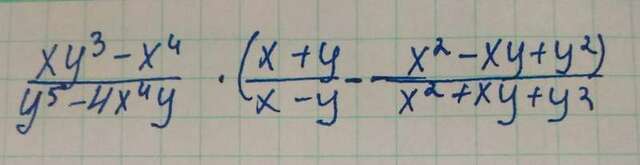 xy³ - x⁴ / y⁵ - 4x⁴y · (x + y / x - y - x² - xy + y² / x² + xy + y²)